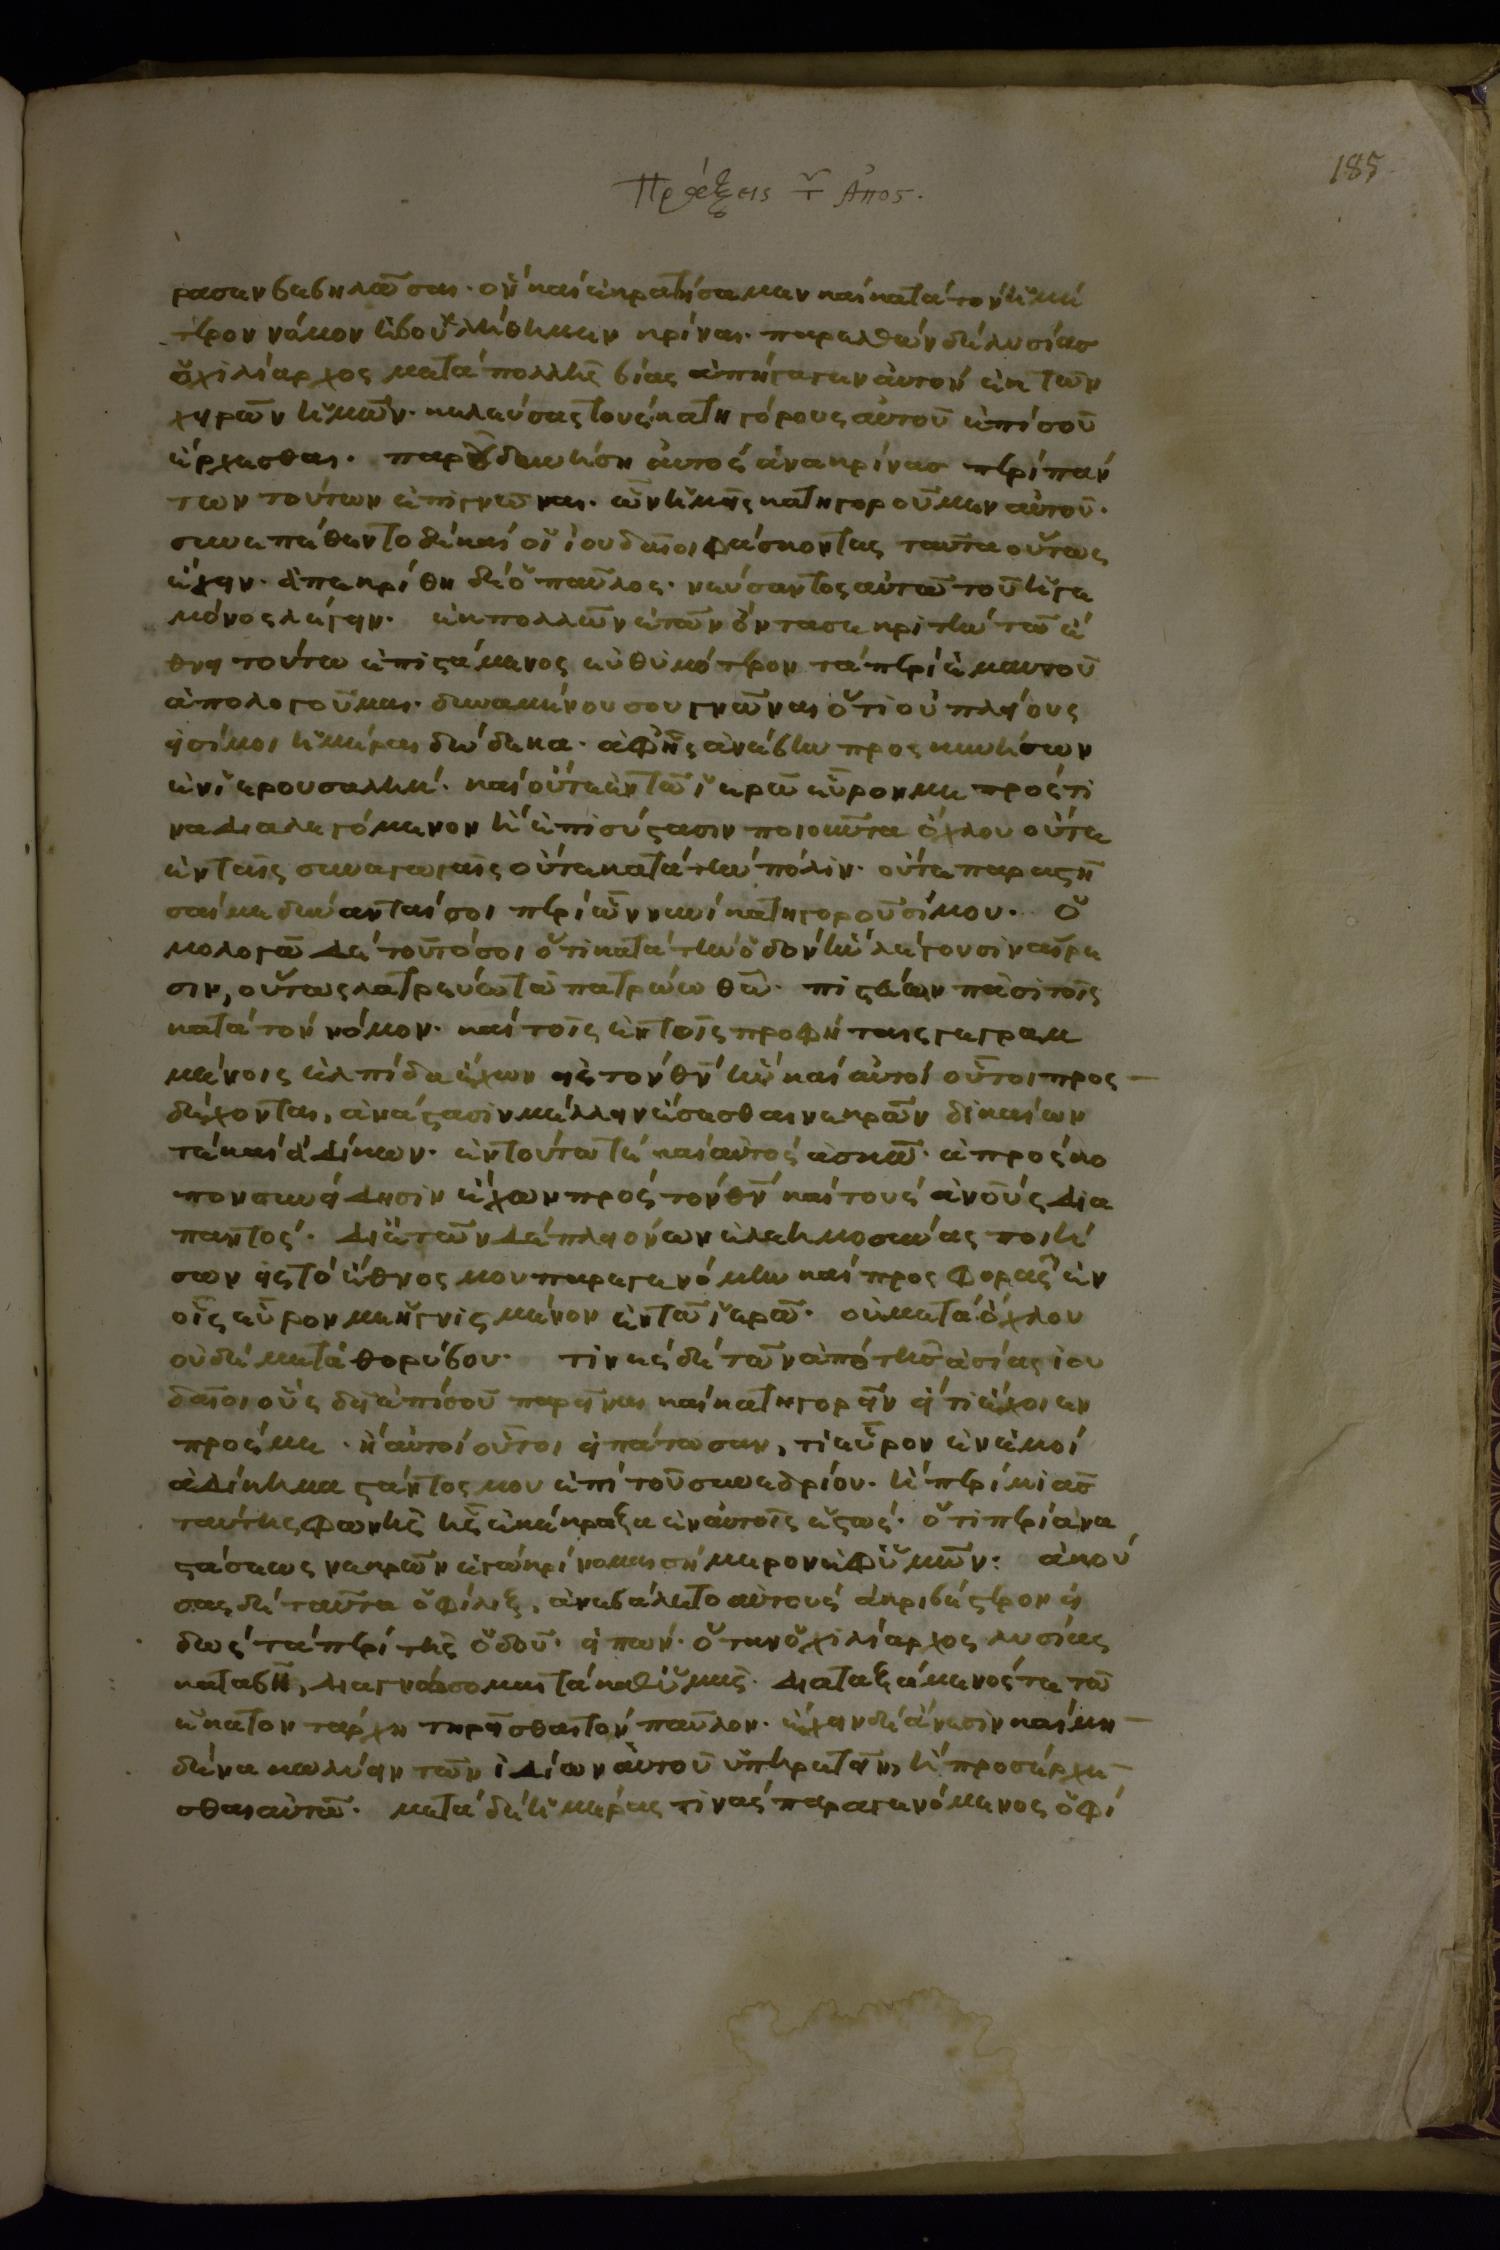 Πράξεις τ Ἀπος.
185
ρασεν βεβηλῶσαι· ὃν καὶ ἐκρατήσαμεν καὶ κατὰ τὸν ἡμέ
τερον νόμον ἠβουλήθημεν κρίναι· παρελθὼν δὲ λυσίας
ὁ χιλίαρχος μετὰ πολλῆς βίας ἀπήγαγεν αὐτὸν ἐκ τῶν
χειρῶν ἡμῶν· κελεύσας τοὺς κατηγόρους αὐτοῦ ἐπί σοῦ
ἔρχεσθαι· παρ οὗ δυνήση αὐτὸς ἀνακρίνας περὶ πάν
των τούτων ἐπιγνῶναι· ὧν ἡμεῖς κατηγοροῦμεν αὐτοῦ·
συνεπέθεντο δὲ καὶ οἱ ἰουδαῖοι φάσκοντες ταῦτα οὕτως
ἔχειν· ἀπεκρίθη δὲ ὁ παῦλος· νεύσαντος αὐτῶ τοῦ ἡγε
μόνος λέγειν· ἐκ πολλῶν ἐτῶν ὄντα σε κριτὴν τῶ ἔ
θνει τούτω ἐπιστάμενος εὐθυμότερον τὰ περὶ ἐμαυτοῦ
ἀπολογοῦμαι· δυναμένου σου γνῶναι ὅτι οὐ πλείους
εἰσί μοι ἡμέραι δώδεκα· ἀφ ἧς ἀνέβην προσκυνήσων
ἐν ἱερουσαλήμ· καὶ οὔτε ἐν τῶ ἱερῶ εὗρον με πρός τι
να διαλεγόμενον ἢ ἐπισύστασιν ποιοῦντα ὄχλου οὔτε
ἐν ταῖς συναγωγαῖς οὔτε κατὰ τὴν πόλιν· οὔτε παραστῆ
σαί με δύνανται σοι περὶ ὧν νυνὶ κατηγοροῦσί μου· ὁ
μολογῶ δὲ τοῦτό σοι ὅτι κατὰ τὴν ὁδὸν ἣν λέγουσιν αἵρε
σιν, οὕτως λατρεύω τῶ πατρώω θῶ· πιστεύων πᾶσι τοῖς
κατὰ τὸν νόμον· καὶ τοῖς ἐν τοῖς προφήταις γεγραμ
μένοις ἐλπίδα ἔχων εἰς τὸν θν ἣν καὶ αὐτοὶ οὗτοι προς
δέχονται, ἀνάστασιν μέλλειν ἔσεσθαι νεκρῶν δικαίων
τε καὶ ἀδίκων· ἐν τούτω τε καὶ αὐτὸς ἀσκῶ· ἀπρόσκο
πον συνείδησιν ἔχων πρὸς τὸν θν καὶ τοὺς ἀνους δια
παντός· δι ἐτῶν δὲ πλειόνων ἐλεημοσύνας ποιή
σων εἰς τὸ ἔθνος μου παρεγενόμην καὶ προσφοράς ἐν
οἷς εὗρον με ἡγνισμένον ἐν τῶ ἱερῶ· οὐ μετὰ ὄχλου
οὐδὲ μετὰ θορύβου· τινὲς δὲ τῶν ἀπὸ τῆς ἀσίας ἰου
δαῖοι οὓς δεῖ ἐπί σοῦ παρεῖναι καὶ κατηγορεῖν εἴ τι ἔχοιεν
πρός με· ἢ αὐτοὶ οὗτοι εἰπάτωσαν, τί εὗρον ἐν ἐμοὶ
ἀδίκημα στάντος μου ἐπὶ τοῦ συνεδρίου· ἢ περὶ μιᾶς
ταύτης φωνῆς ἧς ἐκέκραξα ἐν αὐτοῖς ἑστώς· ὅτι περὶ ἀνα
στάσεως νεκρῶν ἐγὼ κρίνομαι σήμερον ἐφ ὑμῶν· ἀκού
σας δὲ ταῦτα ὁ φίλιξ, ἀνεβάλετο αὐτοὺς ἀκριβέστερον εἰ
δὼς τὰ περὶ τῆς ὁδοῦ· εἰπών· ὅταν ὁ χιλίαρχος λυσίας
καταβῆ, διαγνώσομαι τὰ καθ ὑμᾶς· διαταξάμενός τε τῶ
ἑκατοντάρχη τηρεῖσθαι τὸν παῦλον· ἔχειν δὲ ἄνεσιν καὶ μη
δένα κωλύειν τῶν ἰδίων αὐτοῦ ὑπηρετεῖν, ἢ προσέρχε
σθαι αὐτῶ· μετὰ δὲ ἡμέρας τινὰς παραγενόμενος ὁ φί